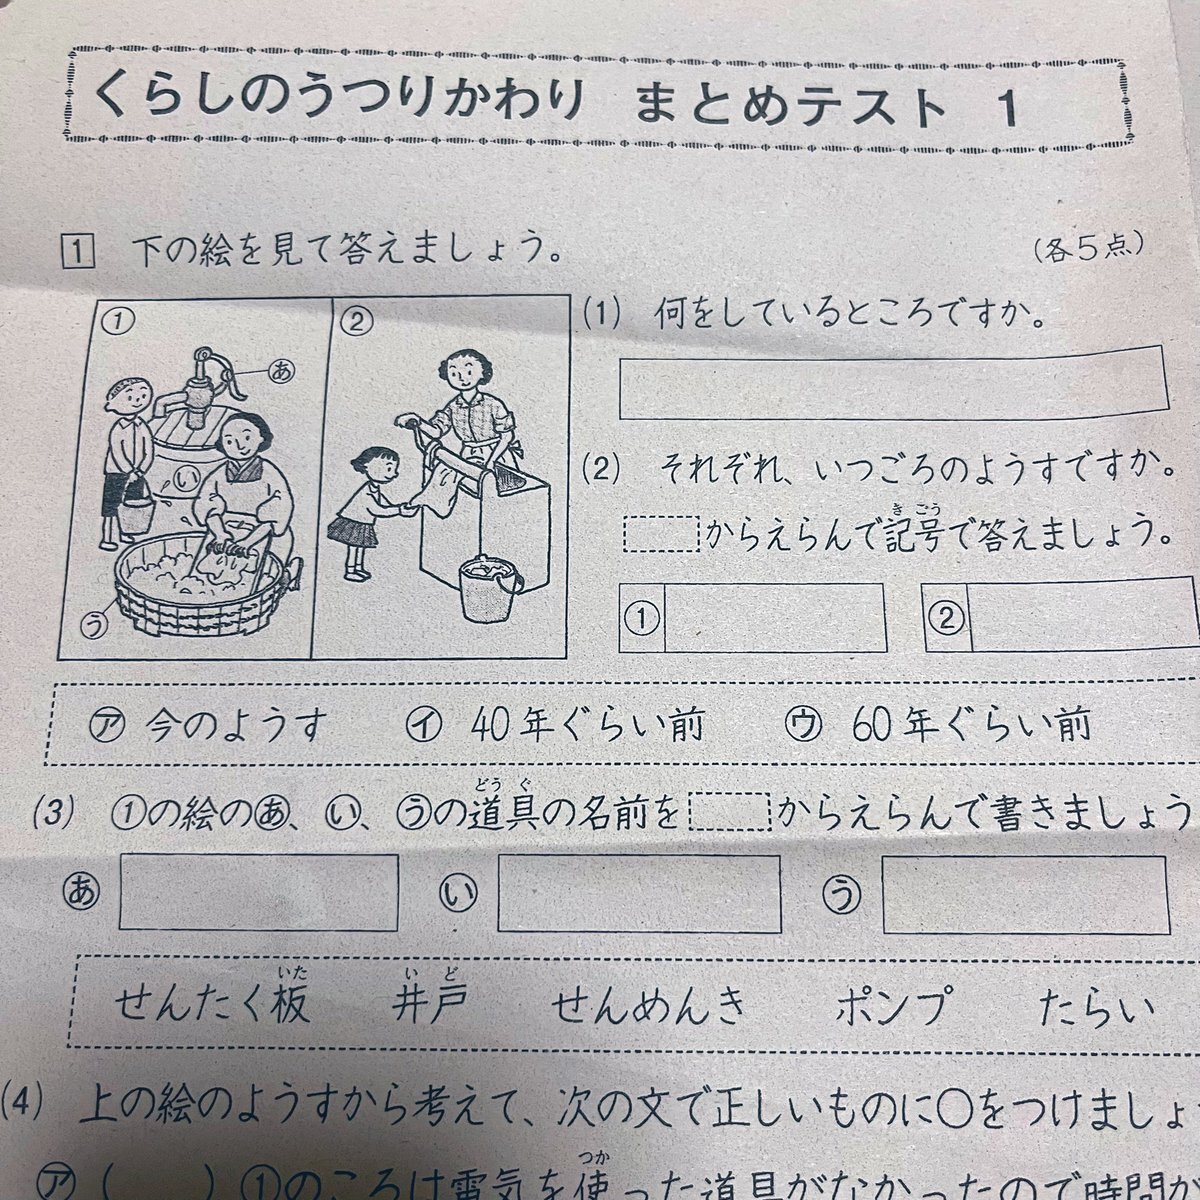 くらしのうつりかわり まとめテスト 1
1 下の絵を見て答えましょう。 (各5点)
① ②
あ
い
う
(1) 何をしているところですか。
(2) それぞれ、いつごろのようすですか。
からえらんで記号で答えましょう。
きごう
① ②
㋐ 今のようす ㋑ 40年ぐらい前 ㋒ 60年ぐらい前
(3) ①の絵のあ、い、うの道具の名前を からえらんで書きましょう
どうぐ
あ い う
せんたく板 井戸 せんめんき ポンプ たらい
いた いど
(4) 上の絵のようすから考えて、次の文で正しいものに○をつけましょ
㋐ ( ) ①のころは電気を使った道具がなかったので時間が
つか